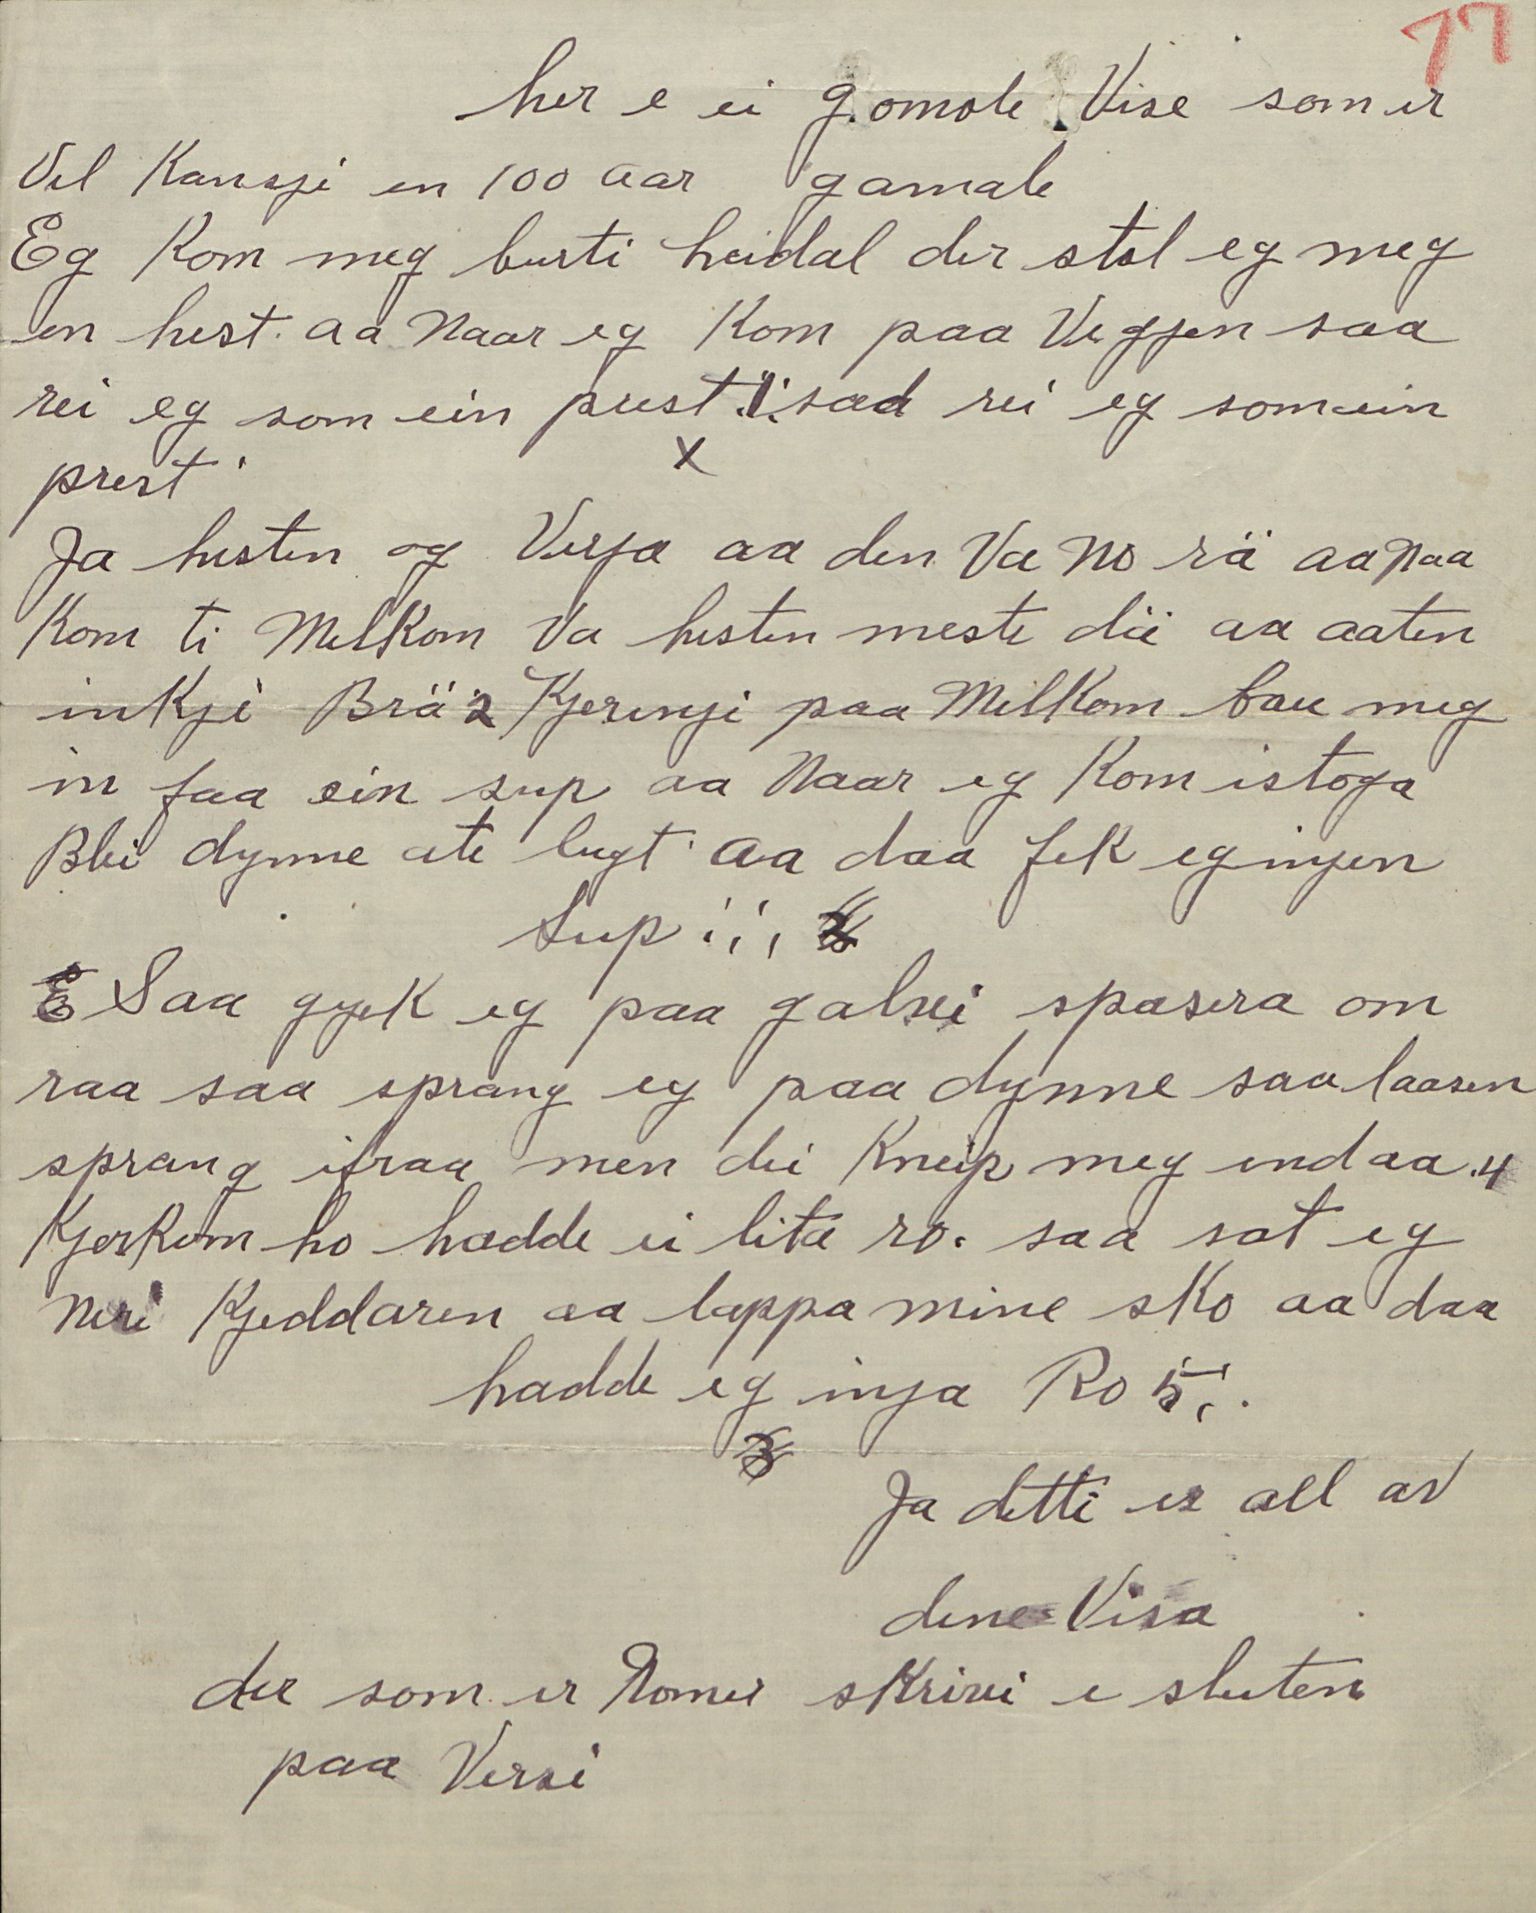 77
her e ei gamole Vise som er
Vel Kansji en 100 aar gamale
Eg Kom meg burti heidal der stal eg meg
en hest. aa Naar eg Kom paa Veggjen saa
rei eg som ein prest 1. saa rei eg som ein
prest
x
Ja hesten og Verja aa den Va no rä aa naa
Kom ti MelKom Va hesten meste däe aa aaten
inkje Brä 2 Kjeringi paa MelKom bau meg
in faa ein sup aa Naar eg Kom i stoga
Blei dynne ate lugt aa daa feK eg ingen
Sup
Saa gjeK eg paa galrei spasera om
raa saa sprang eg paa dynne saa laasen
sprang ifraa men dei Kneip meg endaa. 4
KjerKem ho hadde ei lita ro. saa sat eg
Neri Kjeddaren aa lappa mine sKo aa daa
hadde eg inga Ro 5
Ja detti er all av
dene Visa
der som er Nomer sKrivi e sluten
paa Versi